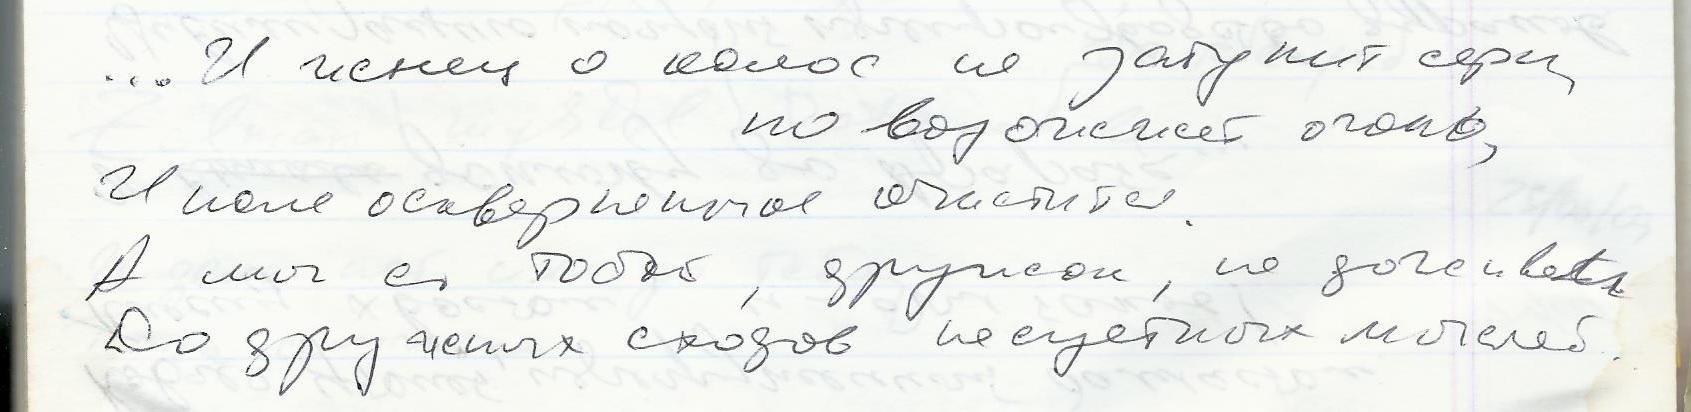 ...И жнец о колос не затупит серп,
но возожжет огонь,
И поле оскверненное очистится.
А мы с тобой, дружок, не доживем
До дружных сходов несуетных мыслей.